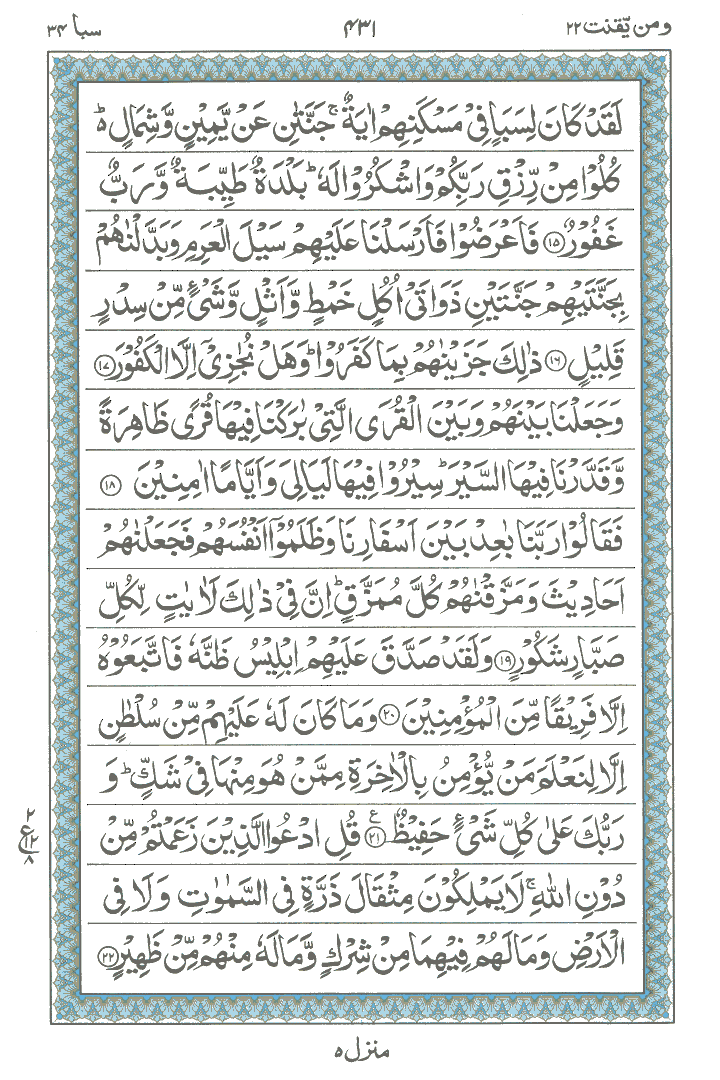 ومن یّقنت ۲۲
۴۳۱
سبا ۳۴
لَقَدْ كَانَ لِسَبَاٍ فِیْ مَسْكَنِهِمْ اٰیَةٌ ۚ جَنَّتٰنِ عَنْ یَّمِیْنٍ وَّ شِمَالٍ ؕ۬
كُلُوْا مِنْ رِّزْقِ رَبِّكُمْ وَ اشْكُرُوْا لَهٗ ؕ بَلْدَةٌ طَیِّبَةٌ وَّ رَبٌّ
غَفُوْرٌ ۝۱۵ فَاَعْرَضُوْا فَاَرْسَلْنَا عَلَیْهِمْ سَیْلَ الْعَرِمِ وَ بَدَّلْنٰهُمْ
بِجَنَّتَیْهِمْ جَنَّتَیْنِ ذَوَاتَیْ اُكُلٍ خَمْطٍ وَّ اَثْلٍ وَّ شَیْءٍ مِّنْ سِدْرٍ
قَلِیْلٍ ۝۱۶ ذٰلِكَ جَزَیْنٰهُمْ بِمَا كَفَرُوْا ؕ وَ هَلْ نُجٰزِیْۤ اِلَّا الْكَفُوْرَ ۝۱۷
وَ جَعَلْنَا بَیْنَهُمْ وَ بَیْنَ الْقُرَی الَّتِیْ بٰرَكْنَا فِیْهَا قُرًی ظَاهِرَةً
وَّ قَدَّرْنَا فِیْهَا السَّیْرَ ؕ سِیْرُوْا فِیْهَا لَیَالِیَ وَ اَیَّامًا اٰمِنِیْنَ ۝۱۸
فَقَالُوْا رَبَّنَا بٰعِدْ بَیْنَ اَسْفَارِنَا وَ ظَلَمُوْۤا اَنْفُسَهُمْ فَجَعَلْنٰهُمْ
اَحَادِیْثَ وَ مَزَّقْنٰهُمْ كُلَّ مُمَزَّقٍ ؕ اِنَّ فِیْ ذٰلِكَ لَاٰیٰتٍ لِّكُلِّ
صَبَّارٍ شَكُوْرٍ ۝۱۹ وَ لَقَدْ صَدَّقَ عَلَیْهِمْ اِبْلِیْسُ ظَنَّهٗ فَاتَّبَعُوْهُ
اِلَّا فَرِیْقًا مِّنَ الْمُؤْمِنِیْنَ ۝۲۰ وَ مَا كَانَ لَهٗ عَلَیْهِمْ مِّنْ سُلْطٰنٍ
اِلَّا لِنَعْلَمَ مَنْ یُّؤْمِنُ بِالْاٰخِرَةِ مِمَّنْ هُوَ مِنْهَا فِیْ شَكٍّ ؕ وَ
رَبُّكَ عَلٰی كُلِّ شَیْءٍ حَفِیْظٌ ۝۲۱ ع قُلِ ادْعُوا الَّذِیْنَ زَعَمْتُمْ مِّنْ
۲
ع ۱۲
۸
دُوْنِ اللّٰهِ ۚ لَا یَمْلِكُوْنَ مِثْقَالَ ذَرَّةٍ فِی السَّمٰوٰتِ وَ لَا فِی
الْاَرْضِ وَ مَا لَهُمْ فِیْهِمَا مِنْ شِرْكٍ وَّ مَا لَهٗ مِنْهُمْ مِّنْ ظَهِیْرٍ ۝۲۲
منزل ۵